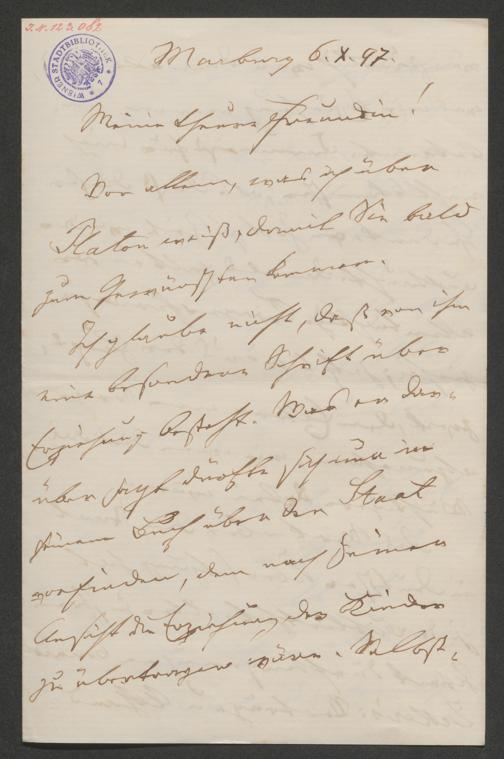 I.N. 123.082
WIENER STADTBIBLIOTHEK
Marburg 6. X. 97.
Meine theure Freundin!
Vor allem, was ich über
Platon weiß, damit Sie bald
zum Gewünschten kommen.
Ich glaube nicht, daß von ihm
eine besondere Schrift über
Erziehung besteht. Was er dar-
über sagt dürfte sich nur in
seinem Buch über den Staat
vorfinden, dem nach seiner
Ansicht die Erziehung der Kinder
zu übertragen wäre. Selbst-